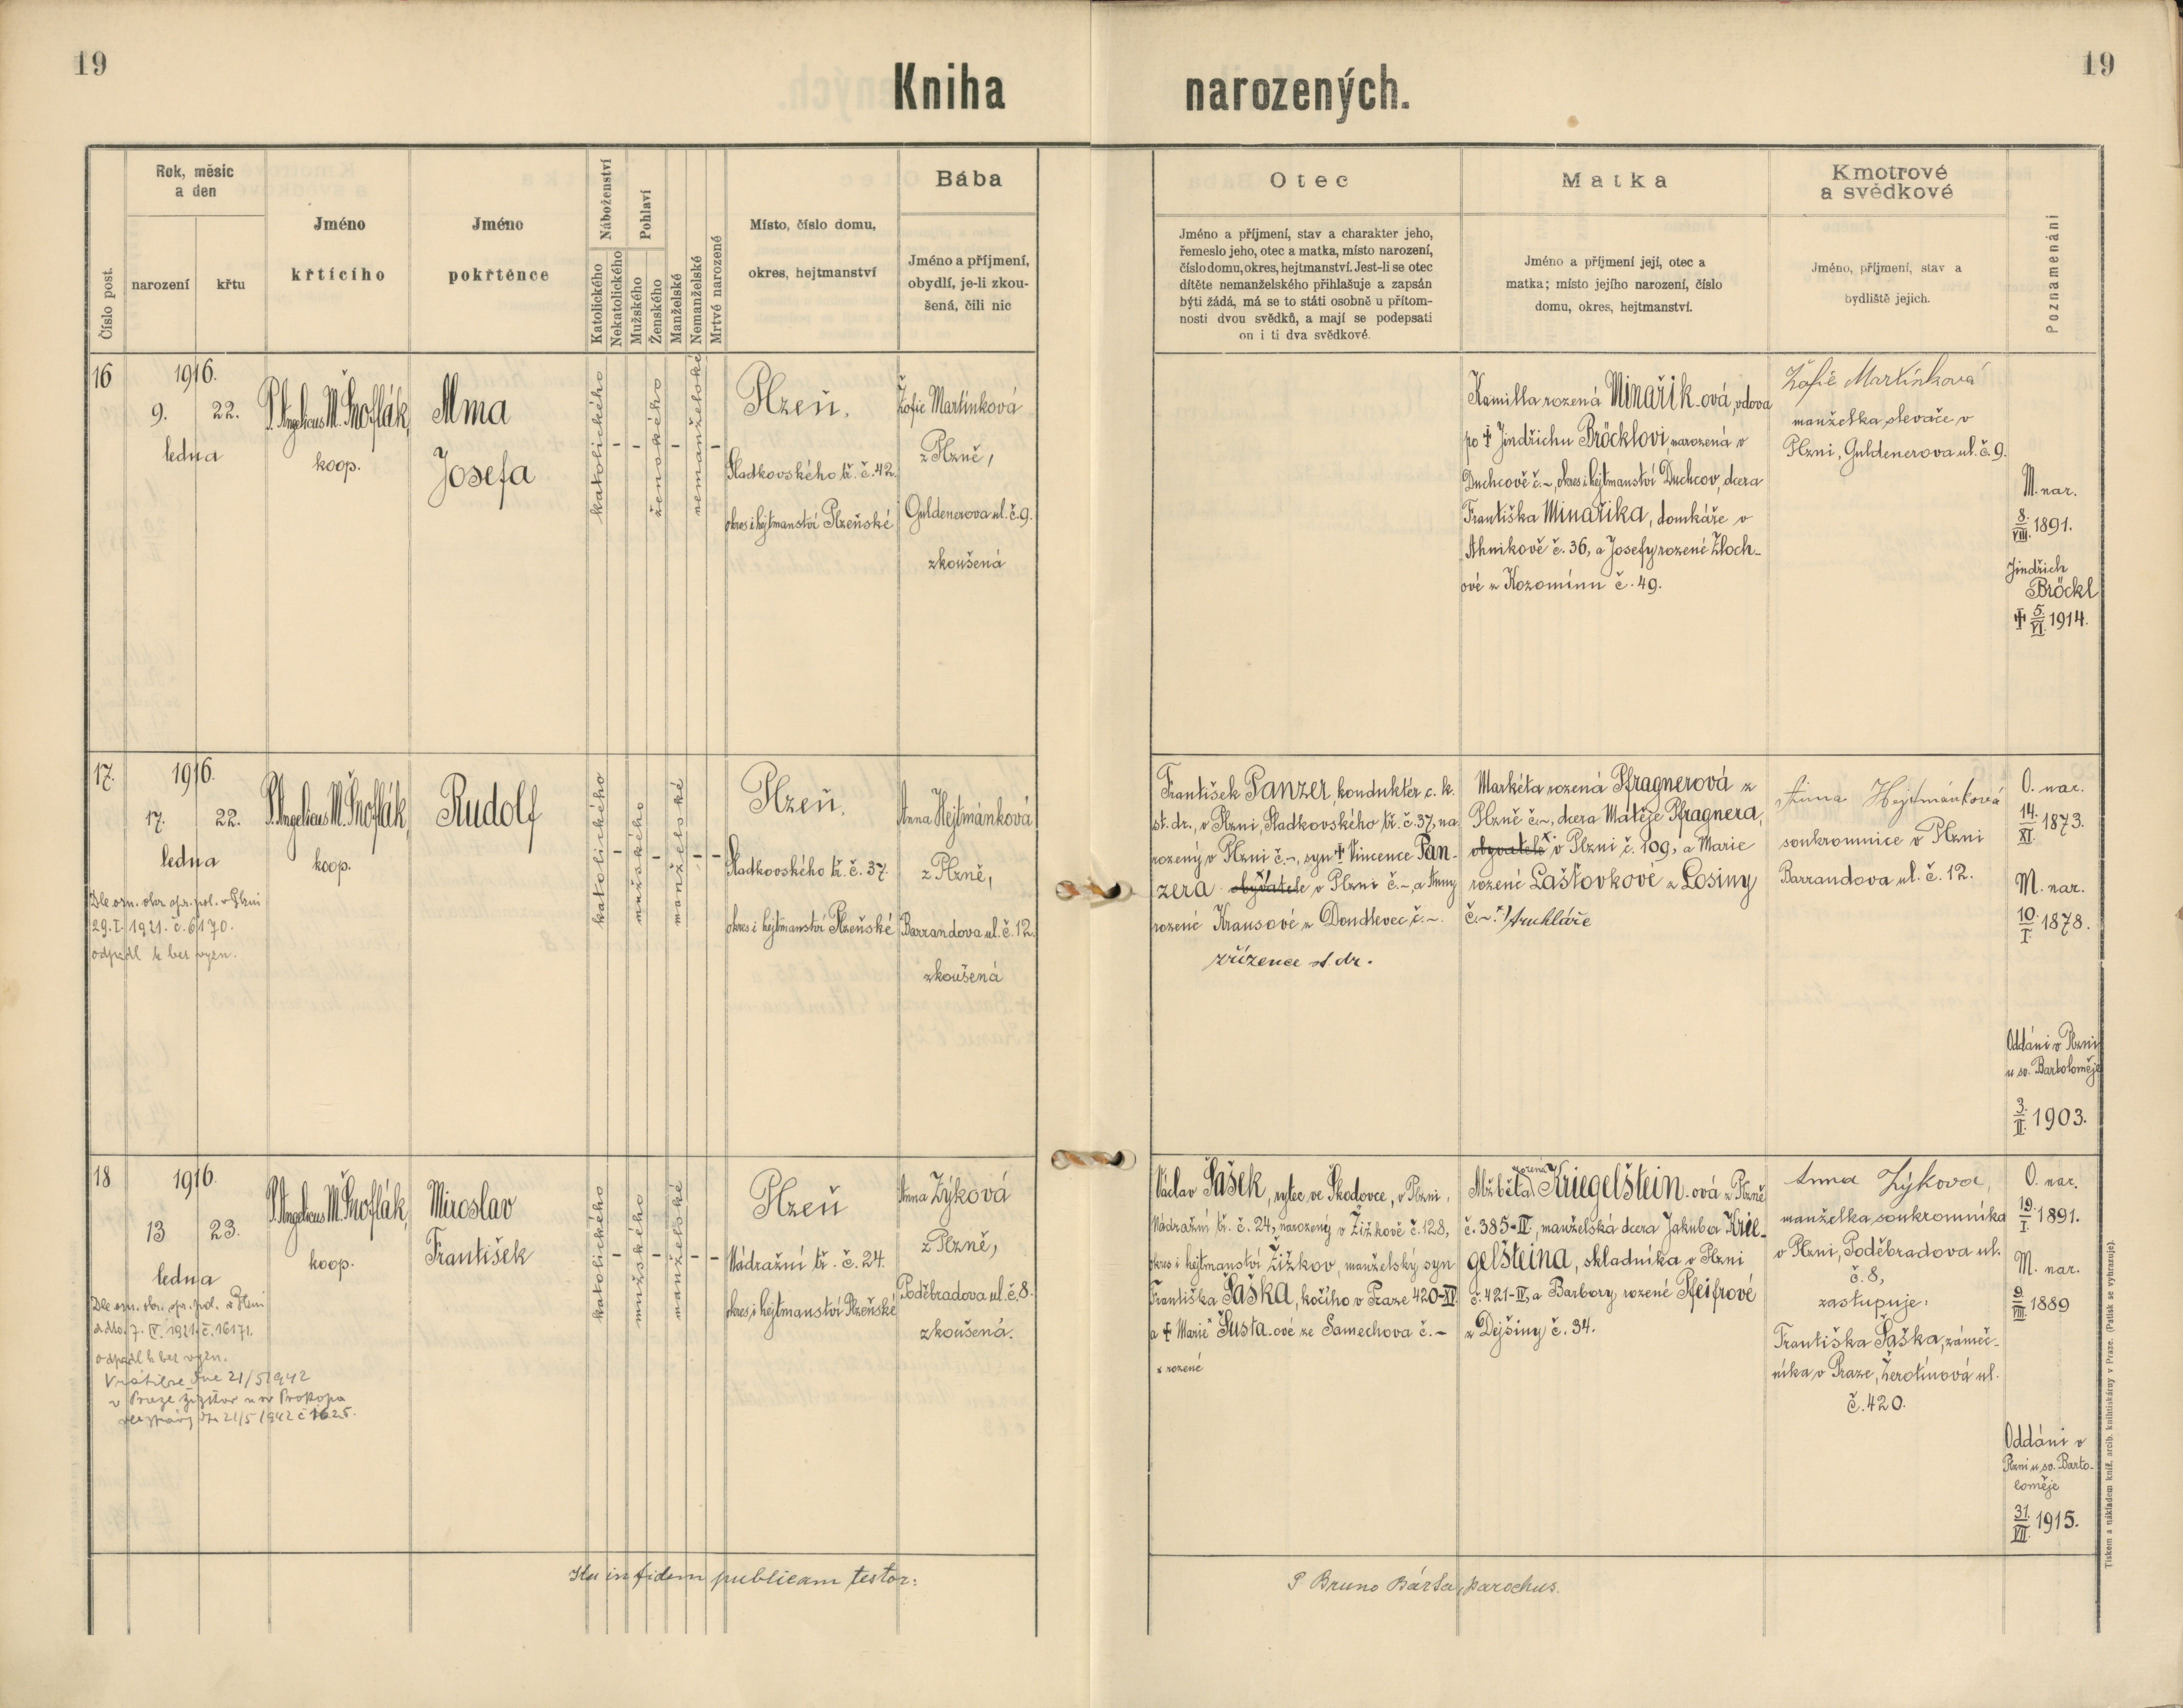 19
Kniha narozených.
19
Číslo post.
Rok, měsíc
a den
narození
křtu
Jméno
křtícího
Jméno
pokřtěnce
Náboženství
Katolického
Nekatolického
Pohlaví
Mužského
Ženského
Manželské
Nemanželské
Mrtvě narozené
Místo, číslo domu,
okres, hejtmanství
Bába
Jméno a příjmení,
obydlí, je-li zkou-
šená, čili nic
Otec
Jméno a příjmení, stav a charakter jeho,
řemeslo jeho, otec a matka, místo narození,
číslo domu, okres, hejtmanství. Jest-li se otec
dítěte nemanželského přihlašuje a zapsán
býti žádá, má se to státi osobně u přítom-
nosti dvou svědků, a mají se podepsati
on i ti dva svědkové.
Matka
Jméno a příjmení její, otec a
matka; místo jejího narození, číslo
domu, okres, hejtmanství.
Kmotrové
a svědkové
Jméno, příjmení, stav a
bydliště jejich.
Poznamenání
16
1916.
9. 22.
ledna
P. Angelicus M.
koop.
Alma
Josefa
katolického
-
-
ženského
-
nemanželské
-
Plzeň,
Sladkovského tř. č. 42.
okres i hejtmanství Plzeňské
Žofie Martínková
z Plzně,
Guldenerova ul. č. 9.
zkoušená
Kamilla rozená Minařík-ová, vdova
po ‡ Jindřichu Bröcklovi, narozená v
Duchcově č. ~, okres i hejtmanství Duchcov, dcera
Františka Minaříka, domkáře v
Ahníkově č. 36, a Josefy rozené Zloch-
ové z Kozomínu č. 49.
Žofie Martínková
manželka slevače v
Plzni, Guldenerova ul. č. 9.
M. nar.
8./VIII. 1891.
Jindřich
Bröckl
‡ 5./VI. 1914.
17.
1916.
17. 22.
ledna
Dle ozn. okr. spr. pol. v Plzni
29. I. 1921. č. 6170.
odpadl k bez vyzn.
P. Angelicus M.
koop.
Rudolf
katolického
-
mužského
-
manželské
-
-
Plzeň,
Sladkovského tř. č. 37.
okres i hejtmanství Plzeňské
Anna Hejtmánková
z Plzně,
Barrandova ul. č. 12.
zkoušená
František Panzer, konduktér c. k.
st. dr., v Plzni, Sladkovského tř. č. 37, na-
rozený v Plzni č. ~, syn ‡ Vincence Pan-
zera obyvatele v Plzni č. ~, a Anny
rozené Krausové z Doudlevec č. ~.
zřízence st. dr.
Markéta rozená Pfragnerová z
Plzně č. ~, dcera Matěje Pfragnera,
obyvatele x) v Plzni č. 109, a Marie
rozené Laštovkové z Losiny
č. ~ x) truhláře
Anna Hejtmánková
soukromnice v Plzni
Barrandova ul. č. 12.
O. nar.
14./XI. 1873.
M. nar.
10./I. 1878.
Oddáni v Plzni
u sv. Bartoloměje
3./II. 1903.
18
1916.
13 23.
ledna
Dle ozn. okr. spr. pol. v Plzni
ddto. 7. IV. 1921. č. 16171.
odpadl k bez vyzn.
Vrátil se dne 21/5 1942
v Praze Žižkov u sv Prokopa
dne 21/5 1942 č 1625.
P. Angelicus M.
koop.
Miroslav
František
katolického
-
mužského
-
manželské
-
-
Plzeň
Nádražní tř. č. 24.
okres i hejtmanství Plzeňské
Anna Zýková
z Plzně,
Poděbradova ul. č. 8.
zkoušená.
Václav Šašek, rytec ve Škodovce, v Plzni,
Nádražní tř. č. 24, narozený v Žižkově č. 128,
okres i hejtmanství Žižkov, manželský syn
Františka Šaška, kočího v Praze 420-XI.
a ‡ Marie x Šusta-ové ze Samechova č. ~
x rozené
Alžběta rozená Kriegelštein-ová z Plzně
č. 385-IV, manželská dcera Jakuba Krie-
gelšteina, skladníka v Plzni
č. 421-IV, a Barbory rozené Pfeifrové
z Dejšiny č. 34.
Anna Zýková,
manželka soukromníka
v Plzni, Poděbradova ul.
č. 8,
zastupuje:
Františka Šaška, zámeč-
níka v Praze, Žerotínová ul.
č. 420.
O. nar.
19./I. 1891.
M. nar.
9./VIII. 1889
Oddáni v
Plzni u sv. Barto-
loměje
31./VII. 1915.
Ita in fidem publicam testor:
P Bruno Bárta, parochus.
Tiskem a nákladem kníž. arcib. knihtiskárny v Praze. (Patisk se vyhrazuje).